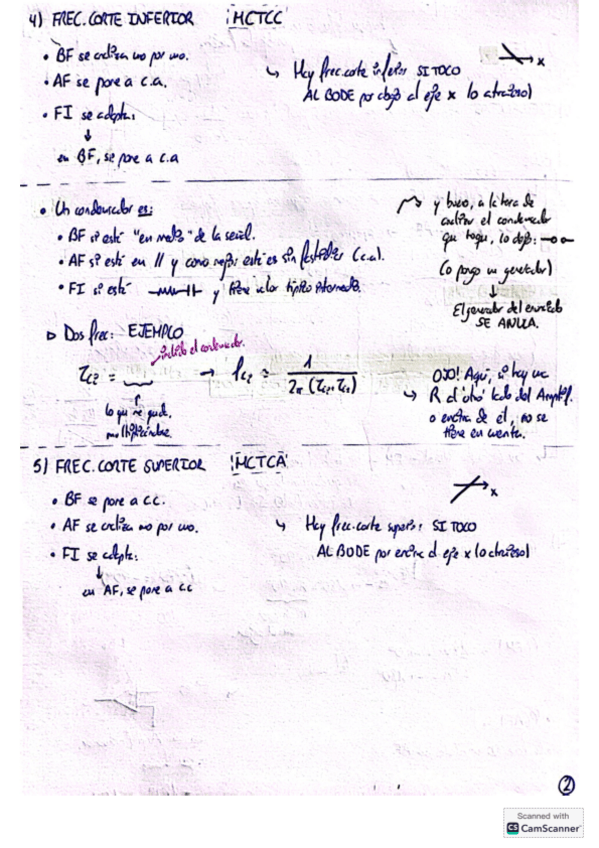 4) FREC. CORTE INFERIOR MCTCC
• BF se analizan uno por uno.
• AF se pone a c.a.
• FI se adapta:
↓
en BF, se pone a c.a
↳ Hay frec. corte inferior SI TOCO
AL BODE por abajo el eje x (lo atravieso)
x
• Un condensador es:
• BF si está "en medio" de la señal.
• AF si está en // y como mejor esté es sin (c.a).
• FI si está y tiene valor típico intermedio.
y bueno, a la hora de
analizar el condensador
que toque, lo dejo:
(o pongo un generador)
↓
El generador del enunciado
SE ANULA.
▷ Dos frec: EJEMPLO
incluido el condensador.
τc2 = → fc2 = 1 / 2π (τc2, τc1)
lo que
multiplicándose.
OJO! Aquí, si hay una
↳ R al otro lado del Amplif.
o encima de él, no se
tiene en cuenta.
5) FREC. CORTE SUPERIOR MCTCA
• BF se pone a cc.
• AF se analizan uno por uno.
• FI se adapta:
↓
en AF, se pone a cc
x
↳ Hay frec. corte superior SI TOCO
AL BODE por encima el eje x (lo atravieso)
2
Scanned with
CS CamScanner